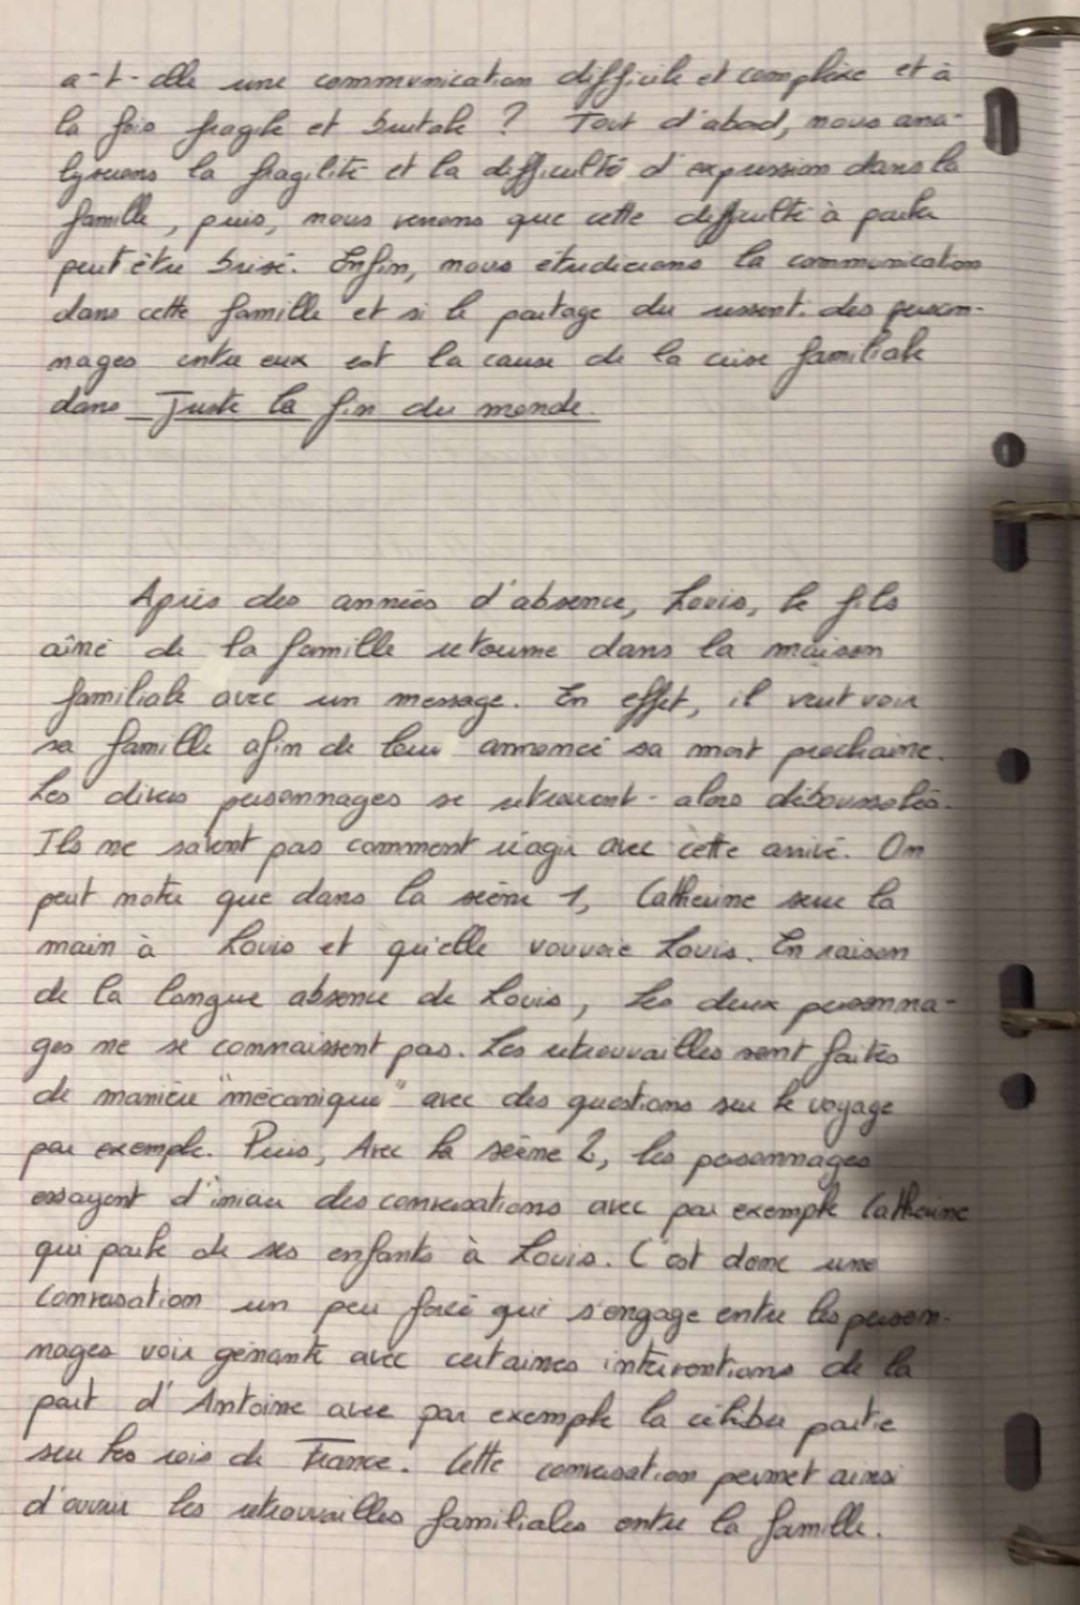 a-t-elle une communication difficile et complexe et à
la fois fragile et brutale ? Tout d'abord, nous ana-
lyserons la fragilité et la difficulté d'expression dans la
famille, puis, nous verrons que cette difficulté à parler
peut être brisé. Enfin, nous étudierons la communication
dans cette famille et si le partage du ressenti des person-
nages entre eux est la cause de la crise familiale
dans Juste la fin du monde.
Après des années d'absence, Louis, le fils
aîné de la famille retourne dans la maison
familiale avec un message. En effet, il veut voir
sa famille afin de leur annoncé sa mort prochaine.
Les divers personnages se retrouvent - alors déboussolés.
Ils ne savent pas comment réagir avec cette arrivé. On
peut noter que dans la scène 1, Catherine serre la
main à Louis et qu'elle vouvoie Louis. En raison
de la longue absence de Louis, les deux personna-
ges ne se connaissent pas. Les retrouvailles sont faites
de manière "mécanique" avec des questions sur le voyage
par exemple. Puis, Avec la scène 2, les personnages
essayent d'iniair des conversations avec par exemple Catherine
qui parle de ses enfants à Louis. C'est donc une
conversation un peu forcé qui s'engage entre les person-
nages voir gênante avec certaines interventions de la
part d'Antoine avec par exemple la célèbre partie
sur les rois de France. Cette conversation permet ainsi
d'ouvrir les retrouvailles familiales entre la famille.